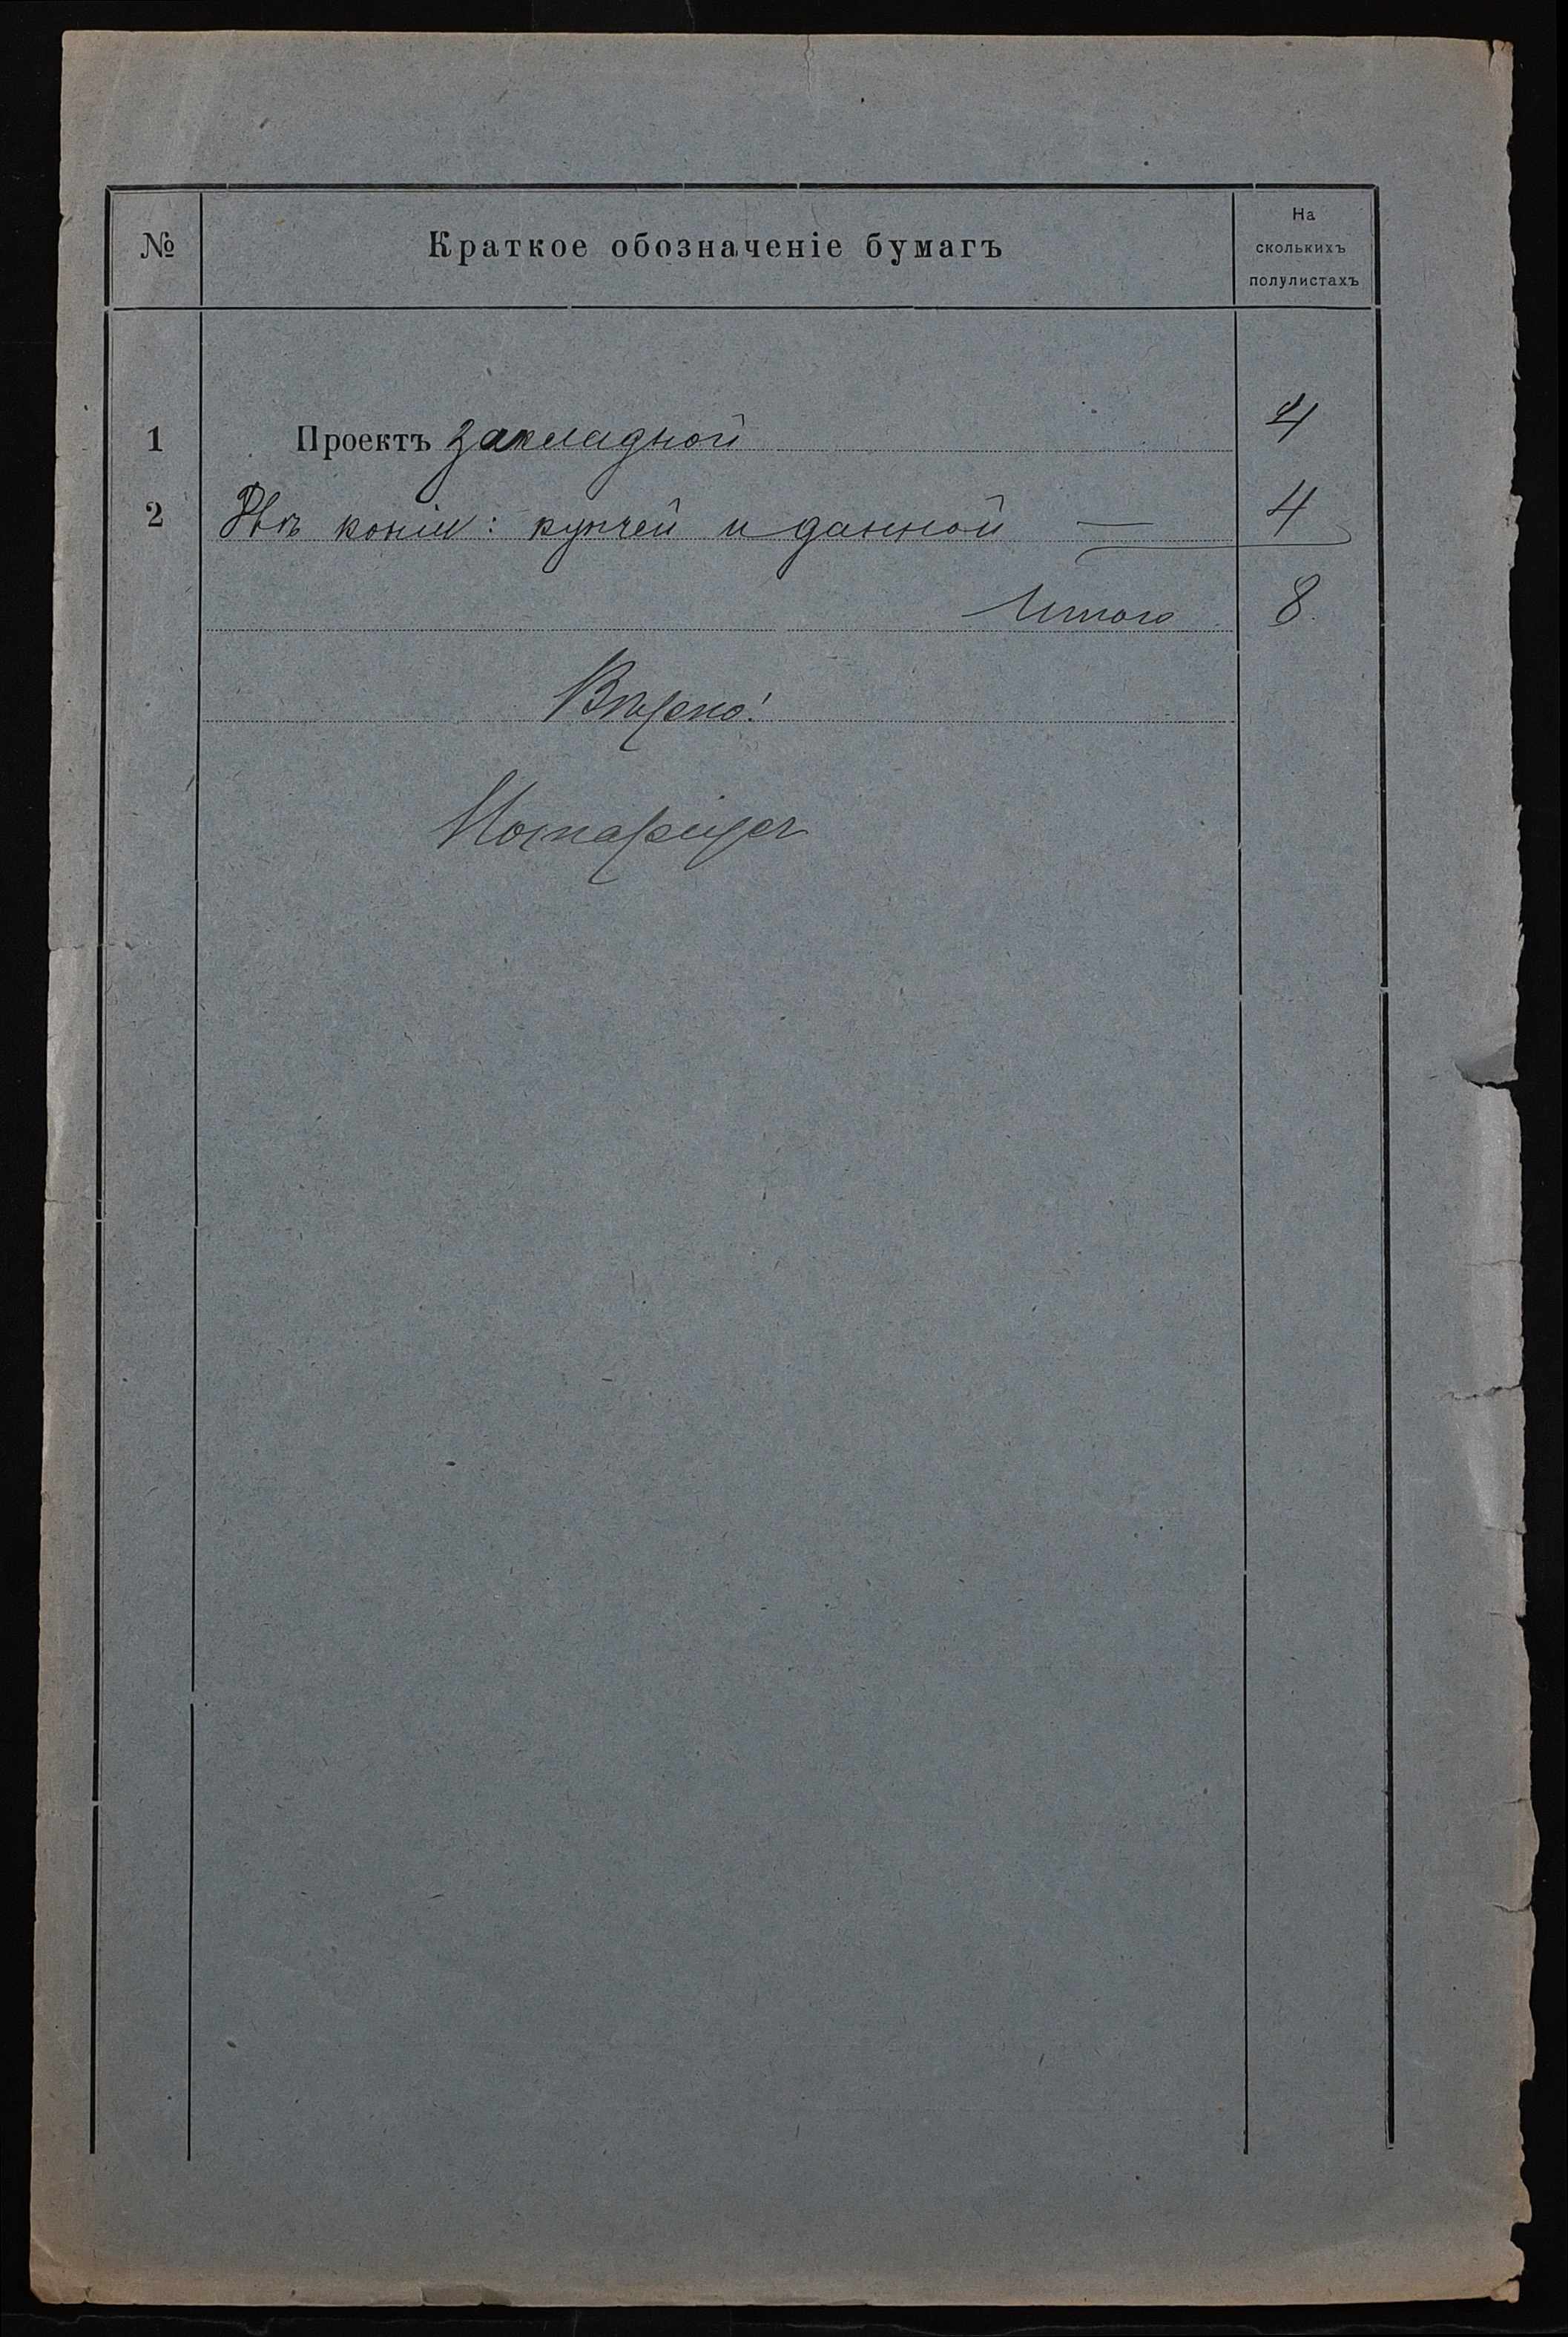 №
Краткое обозначеніе бумагъ
На
сколькихъ
полулистахъ
1 Проектъ закладной 4
2 Двѣ копіи: купчей и данной — 4
Итого 8
Вѣрно!
Нотаріусъ